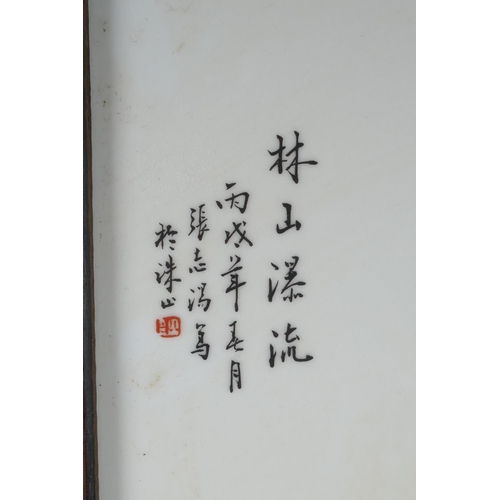 林山瀑流
丙戌年春月
張志湯寫
於珠山